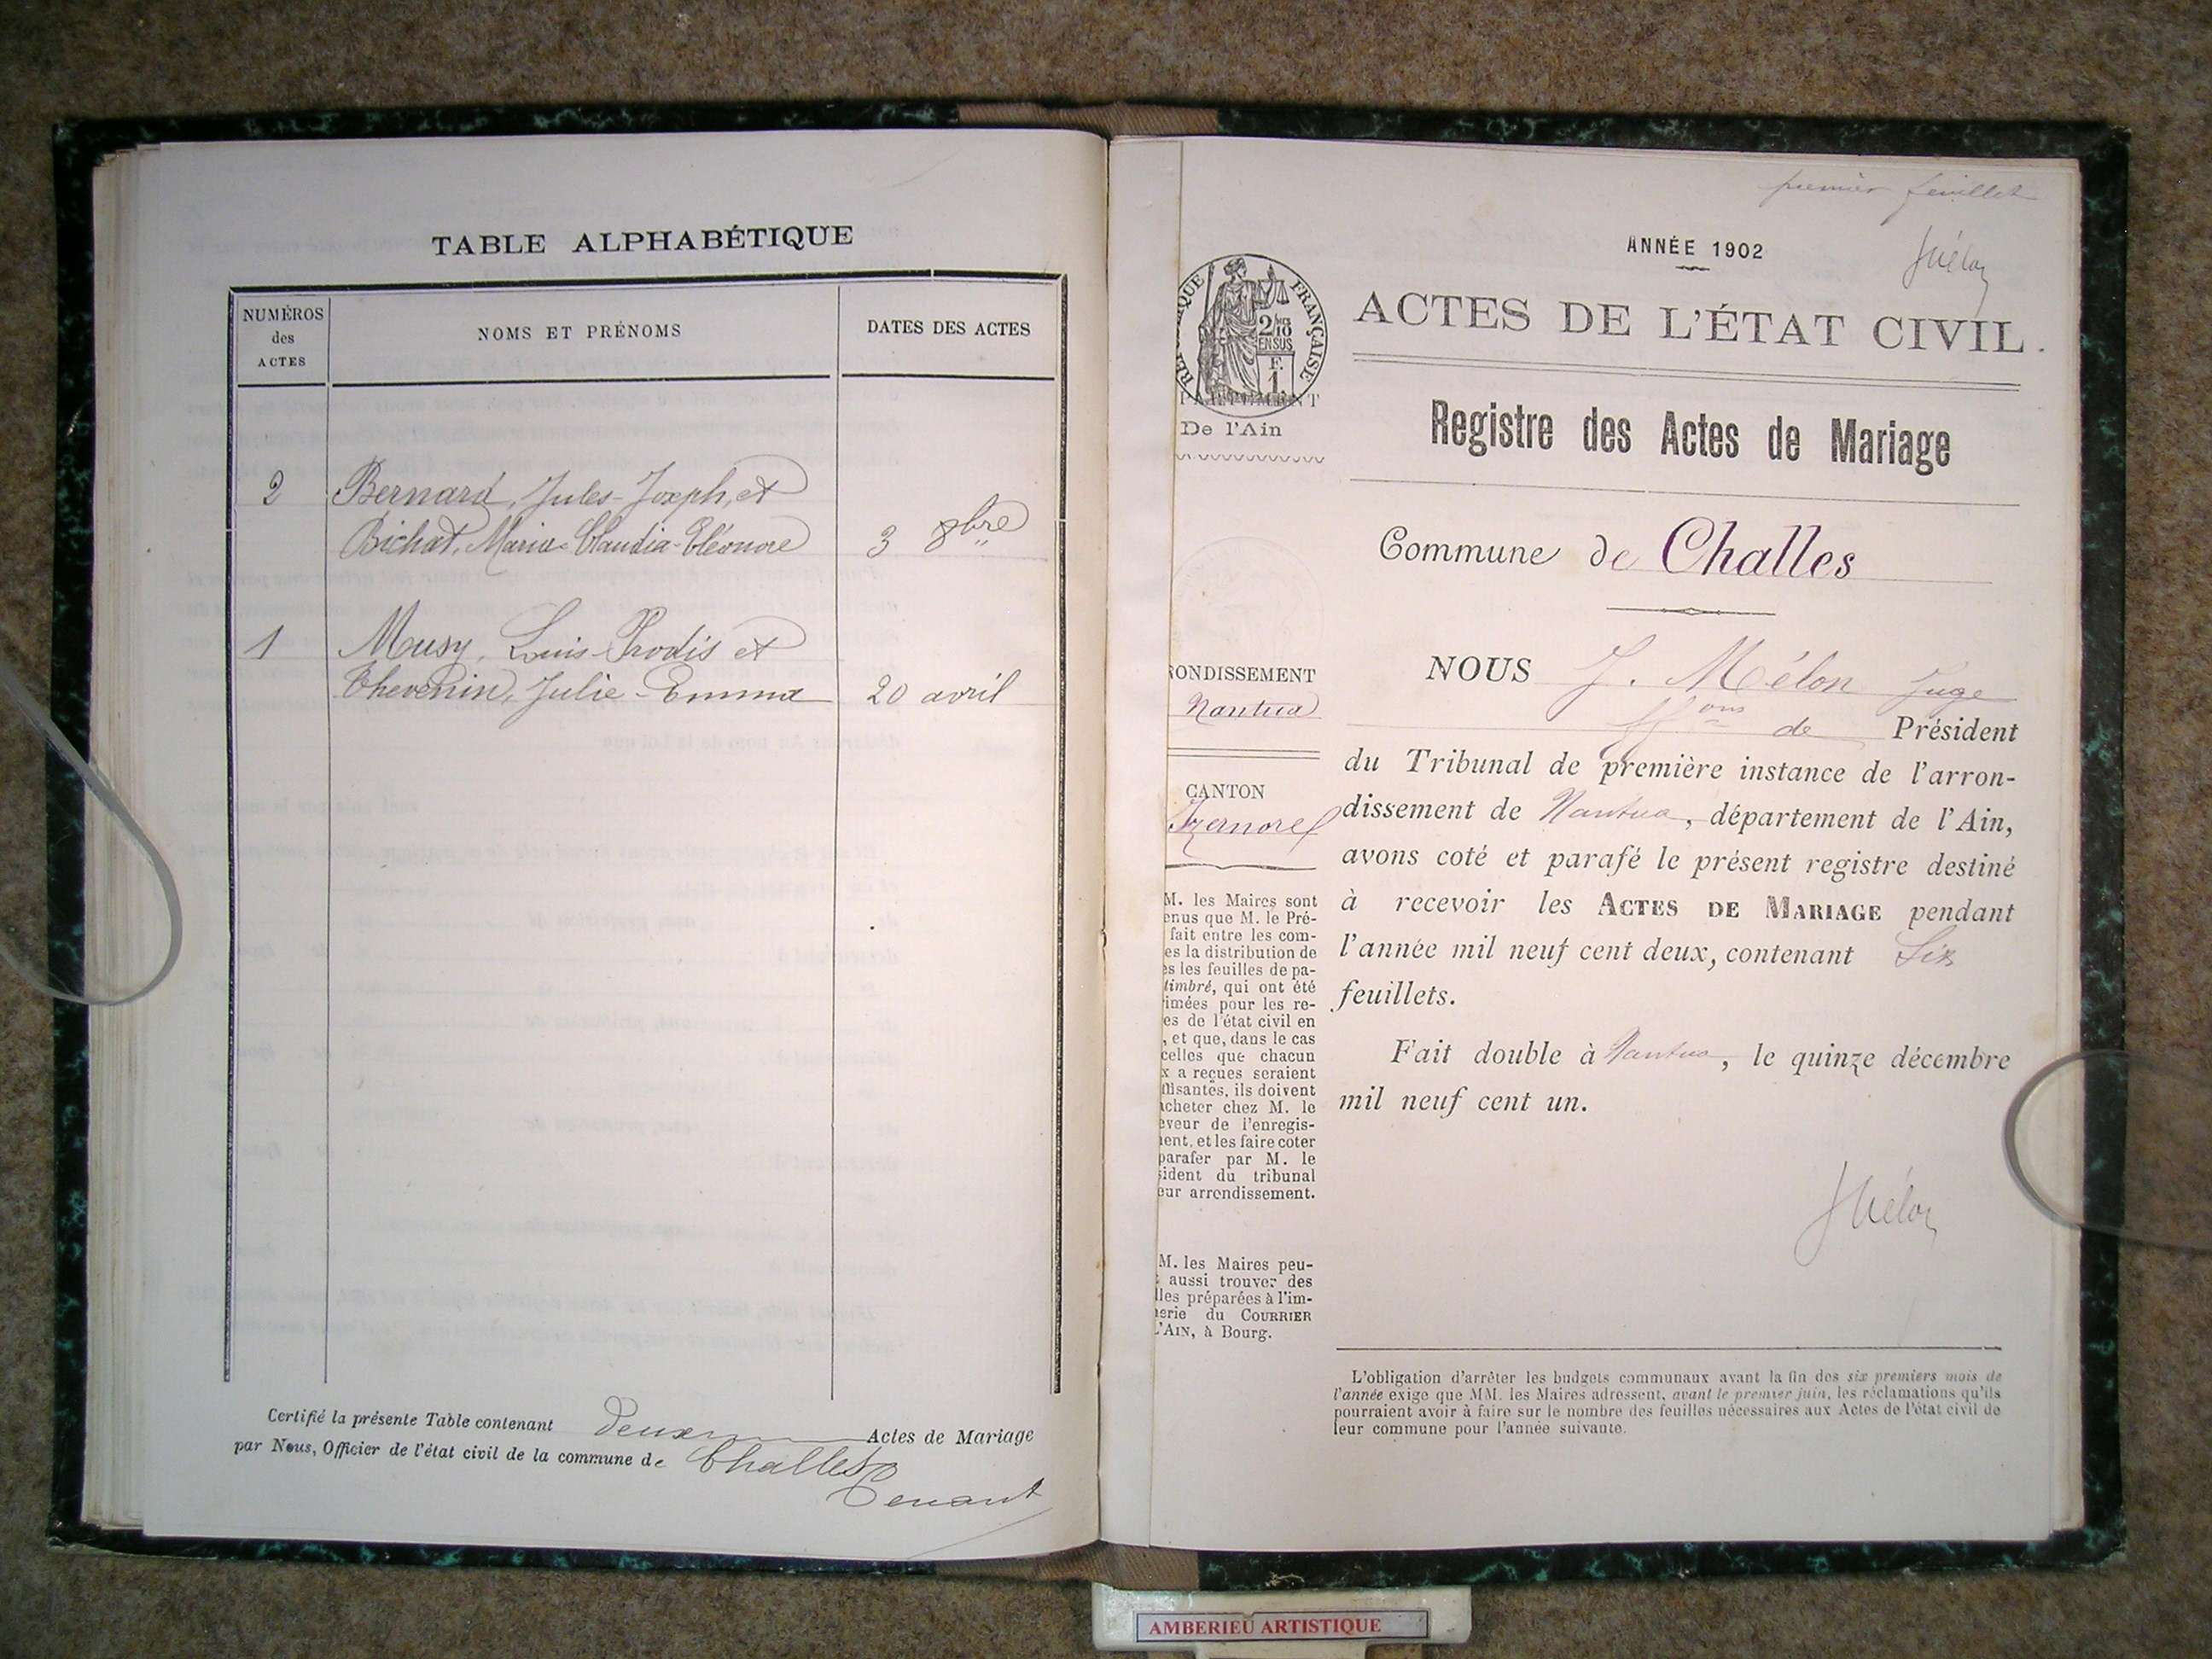 TABLE ALPHABÉTIQUE
NUMÉROS
des
ACTES
NOMS ET PRÉNOMS
DATES DES ACTES
2 Bernard, Jules-Joseph, et
Bichat, Maria-Claudia-Eléonore 3 8bre
1 Musy, Louis-Prodis et
Thevenin, Julie-Emma 20 avril
Certifié la présente Table contenant deux Actes de Mariage
par Nous, Officier de l'état civil de la commune de Challes
premier feuillet
ANNÉE 1902
ACTES DE L'ÉTAT CIVIL.
FRANÇAISE
De l'Ain
Registre des Actes de Mariage
Commune de Challes
RONDISSEMENT
Nantua
CANTON
Izernore
M. les Maires sont
enus que M. le Pré-
fait entre les com-
es la distribution de
es les feuilles de pa-
timbré, qui ont été
imées pour les re-
es de l'état civil en
, et que, dans le cas
celles que chacun
x a reçues seraient
ffisantes, ils doivent
cheter chez M. le
eveur de l'enregis-
ent, et les faire coter
parafer par M. le
sident du tribunal
eur arrondissement.
M. les Maires peu-
aussi trouver des
lles préparées à l'im-
erie du COURRIER
L'AIN, à Bourg.
NOUS J. Mélon Juge
ffons de Président
du Tribunal de première instance de l'arron-
dissement de Nantua, département de l'Ain,
avons coté et parafé le présent registre destiné
à recevoir les ACTES DE MARIAGE pendant
l'année mil neuf cent deux, contenant Six
feuillets.
Fait double à Nantua, le quinze décembre
mil neuf cent un.
JMélon
L'obligation d'arrêter les budgets communaux avant la fin des six premiers mois de
l'année exige que MM. les Maires adressent, avant le premier juin, les réclamations qu'ils
pourraient avoir à faire sur le nombre des feuilles nécessaires aux Actes de l'état civil de
leur commune pour l'année suivante.
AMBERIEU ARTISTIQUE